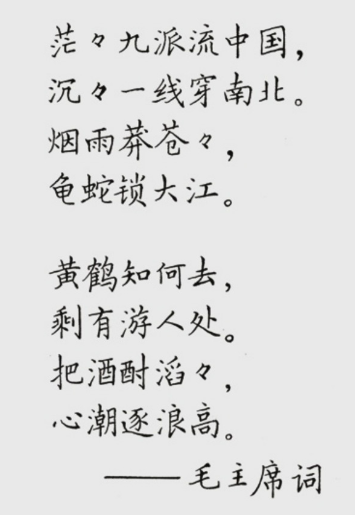 茫々九派流中国，
沉々一线穿南北。
烟雨莽苍々，
龟蛇锁大江。
黄鹤知何去，
剩有游人处。
把酒酎滔々，
心潮逐浪高。
——毛主席词